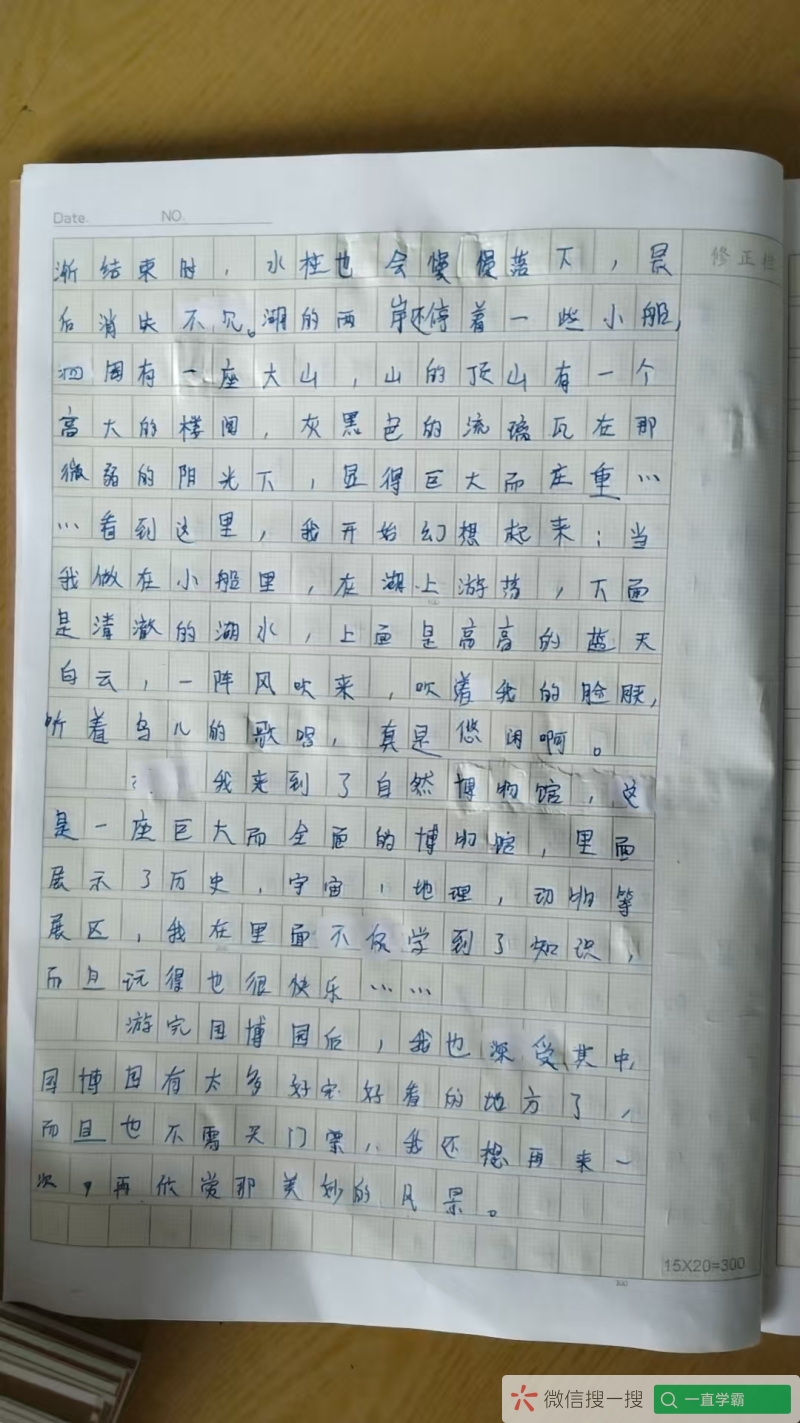 Date. NO.
修正栏
渐结束时，水柱也会慢慢落下，最
后消失不见。湖的两岸还停着一些小船，
四周有一座大山，山的顶山有一个
高大的楼阁，灰黑色的流璃瓦在那
微弱的阳光下，显得巨大而庄重…
…看到这里，我开始幻想起来：当
我做在小船里，在湖上游荡，下面
是清澈的湖水，上面是高高的蓝天
白云，一阵风吹来，吹着我的脸颊，
听着鸟儿的歌唱，真是悠闲啊。
我来到了自然博物馆，这
是一座巨大而全面的博物馆，里面
展示了历史，宇宙，地理，动物等
展区，我在里面不仅学到了知识，
而且玩得也很快乐……
游完园博园后，我也深受其中，
园博园有太多好玩好看的地方了，
而且也不需买门票，我还想再来一
次，再欣赏那美妙的风景。
15X20=300
300
微信搜一搜
一直学霸